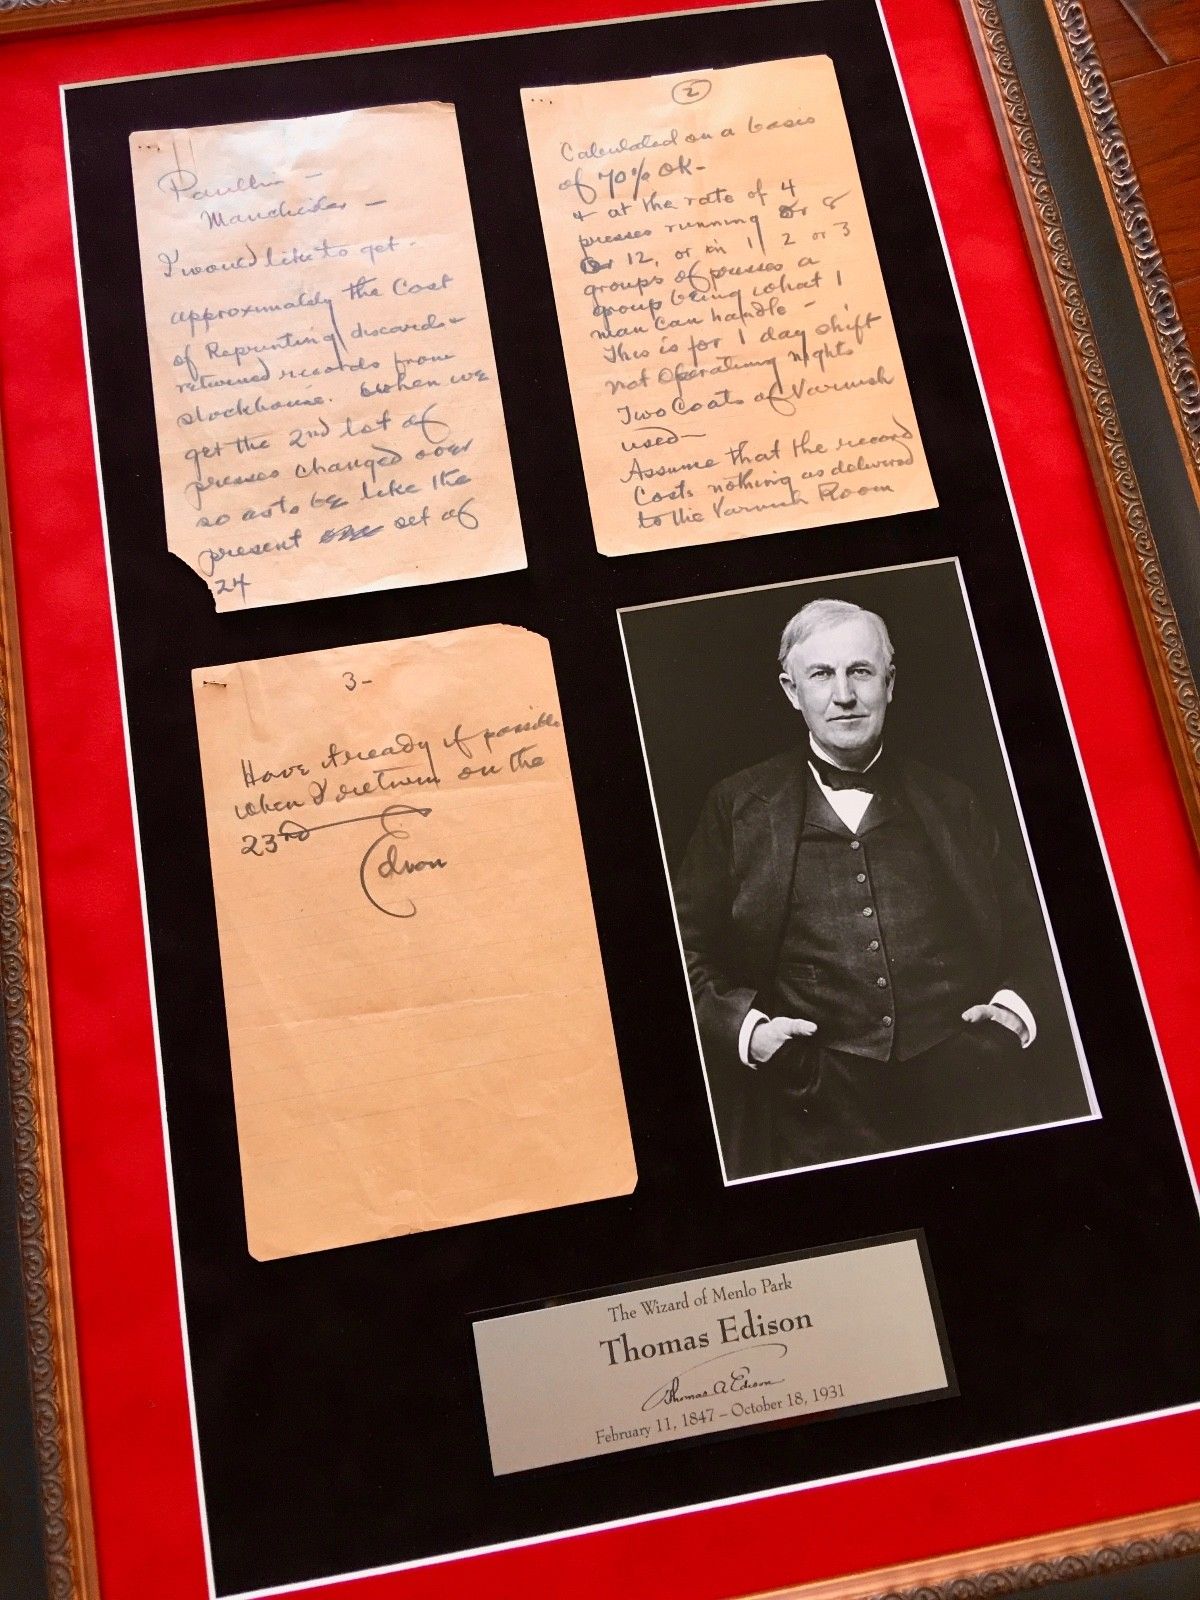 Paullin –
Manchester –
I would like to get
approximately the Cost
of Reprinting discards &
returned records from
stockhouse. when we
get the 2nd lot of
presses changed over
so as to be like the
present set of
24
2
Calculated on a basis
of 70% OK–
& at the rate of 4
presses running or 8
or 12, or in 1, 2 or 3
groups of presses a
group being what 1
man can handle –
This is for 1 day shift
not operating nights
Two Coats of Varnish
used–
Assume that the record
Costs nothing as delivered
to the Varnish Room
3–
Have Already if possible
when I return on the
23rd
Edison
The Wizard of Menlo Park
Thomas Edison
Thomas A Edison
February 11, 1847 – October 18, 1931